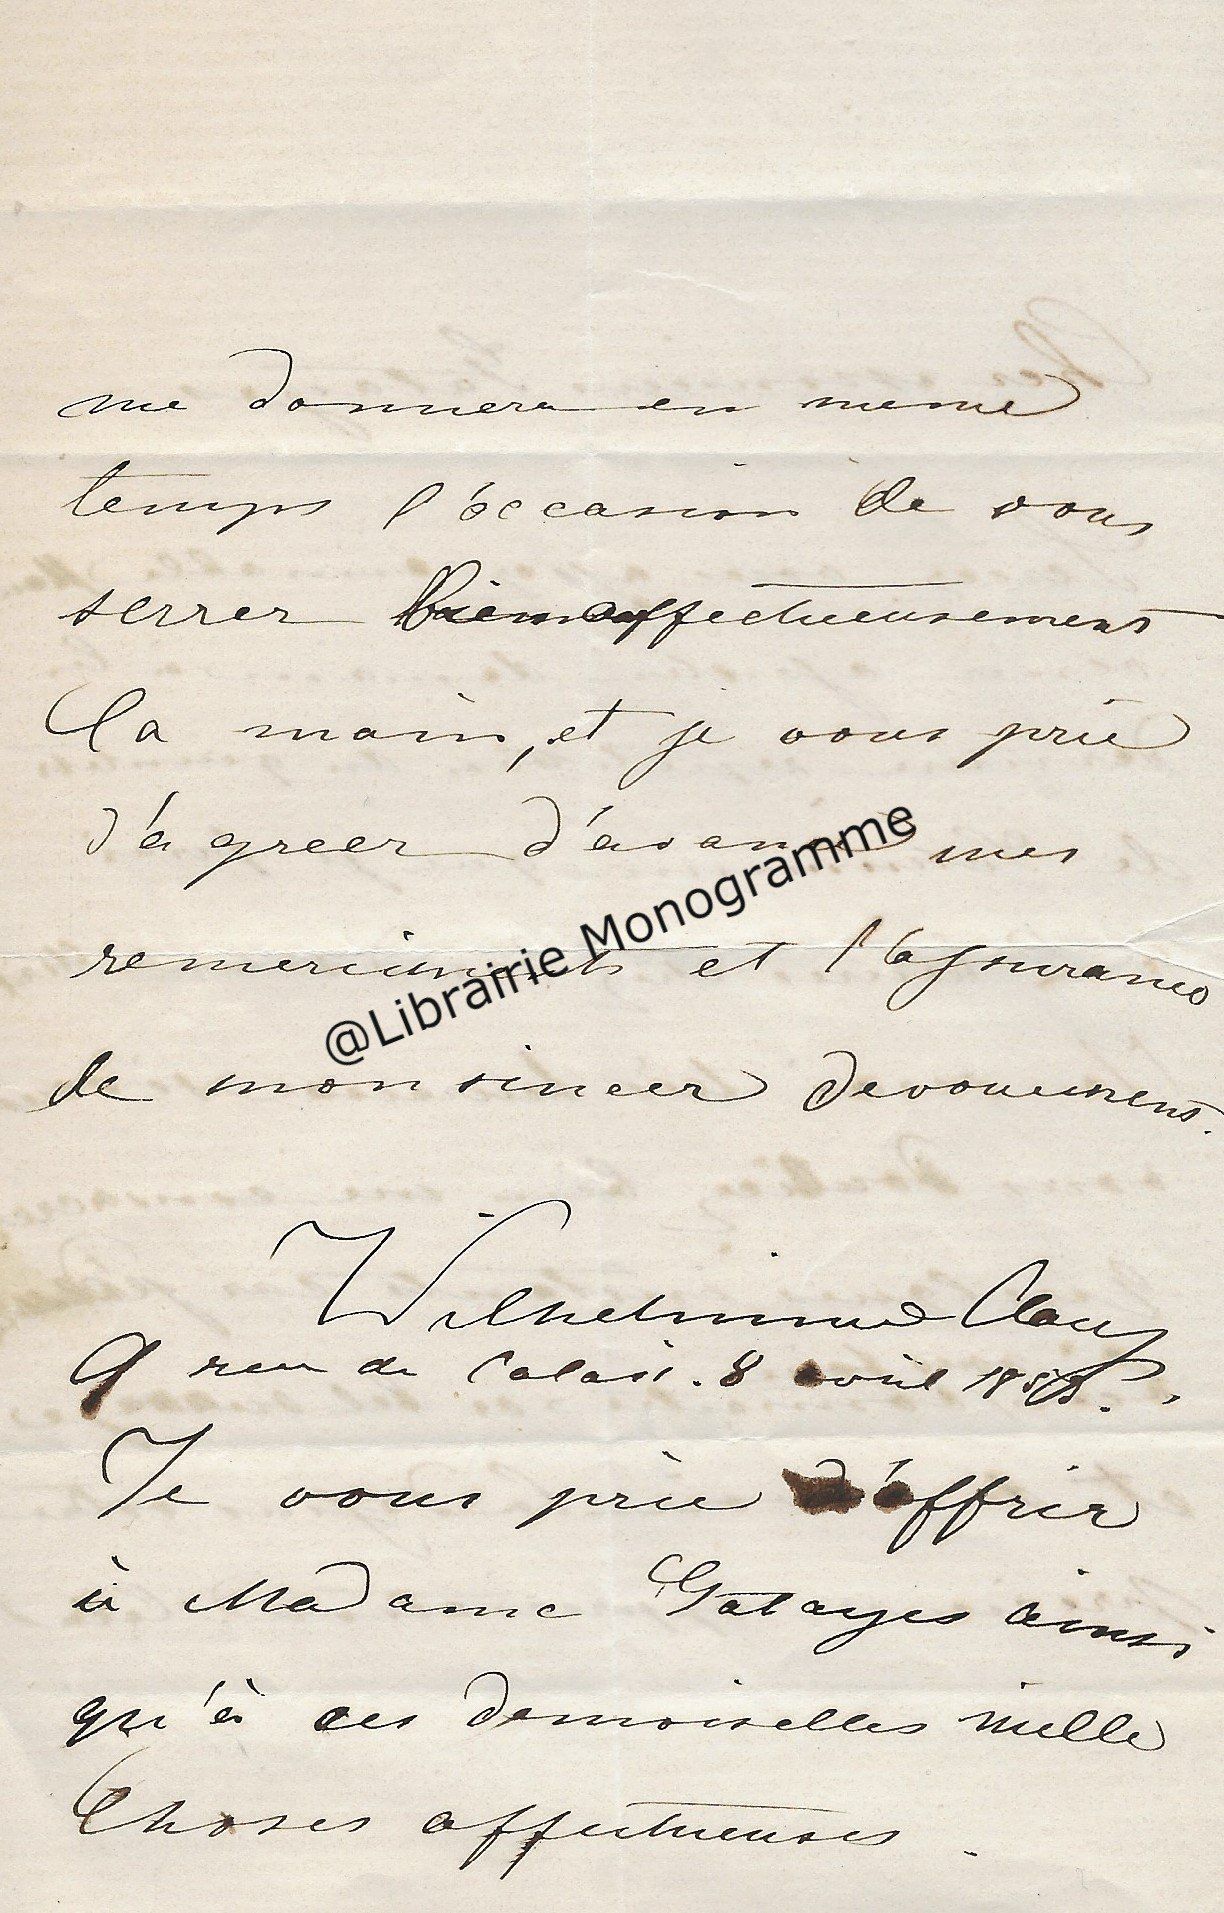 me donnera en meme
temps l'occasion de vous
serrer bien affectueusement
la main, et je vous prie
d'agreer d'avance mes
remerciments et l'assurance
de mon sincer devouement.
@Librairie Monogramme
Wilhelmine Clauss
9 rue de Calais. 8 avril
Je vous prie d'offrir
à Madame Gatayes ainsi
qu'à ces demoiselles mille
choses affectueuses.